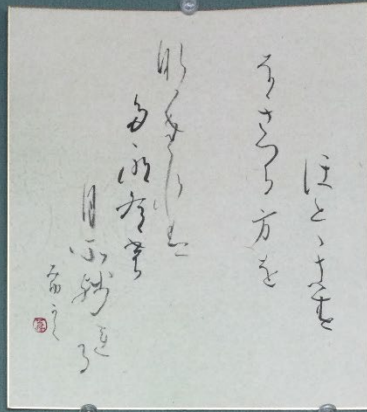 ほとゝきす
なきつる方を
なかむれは
たゝ有明の
月そ残れる